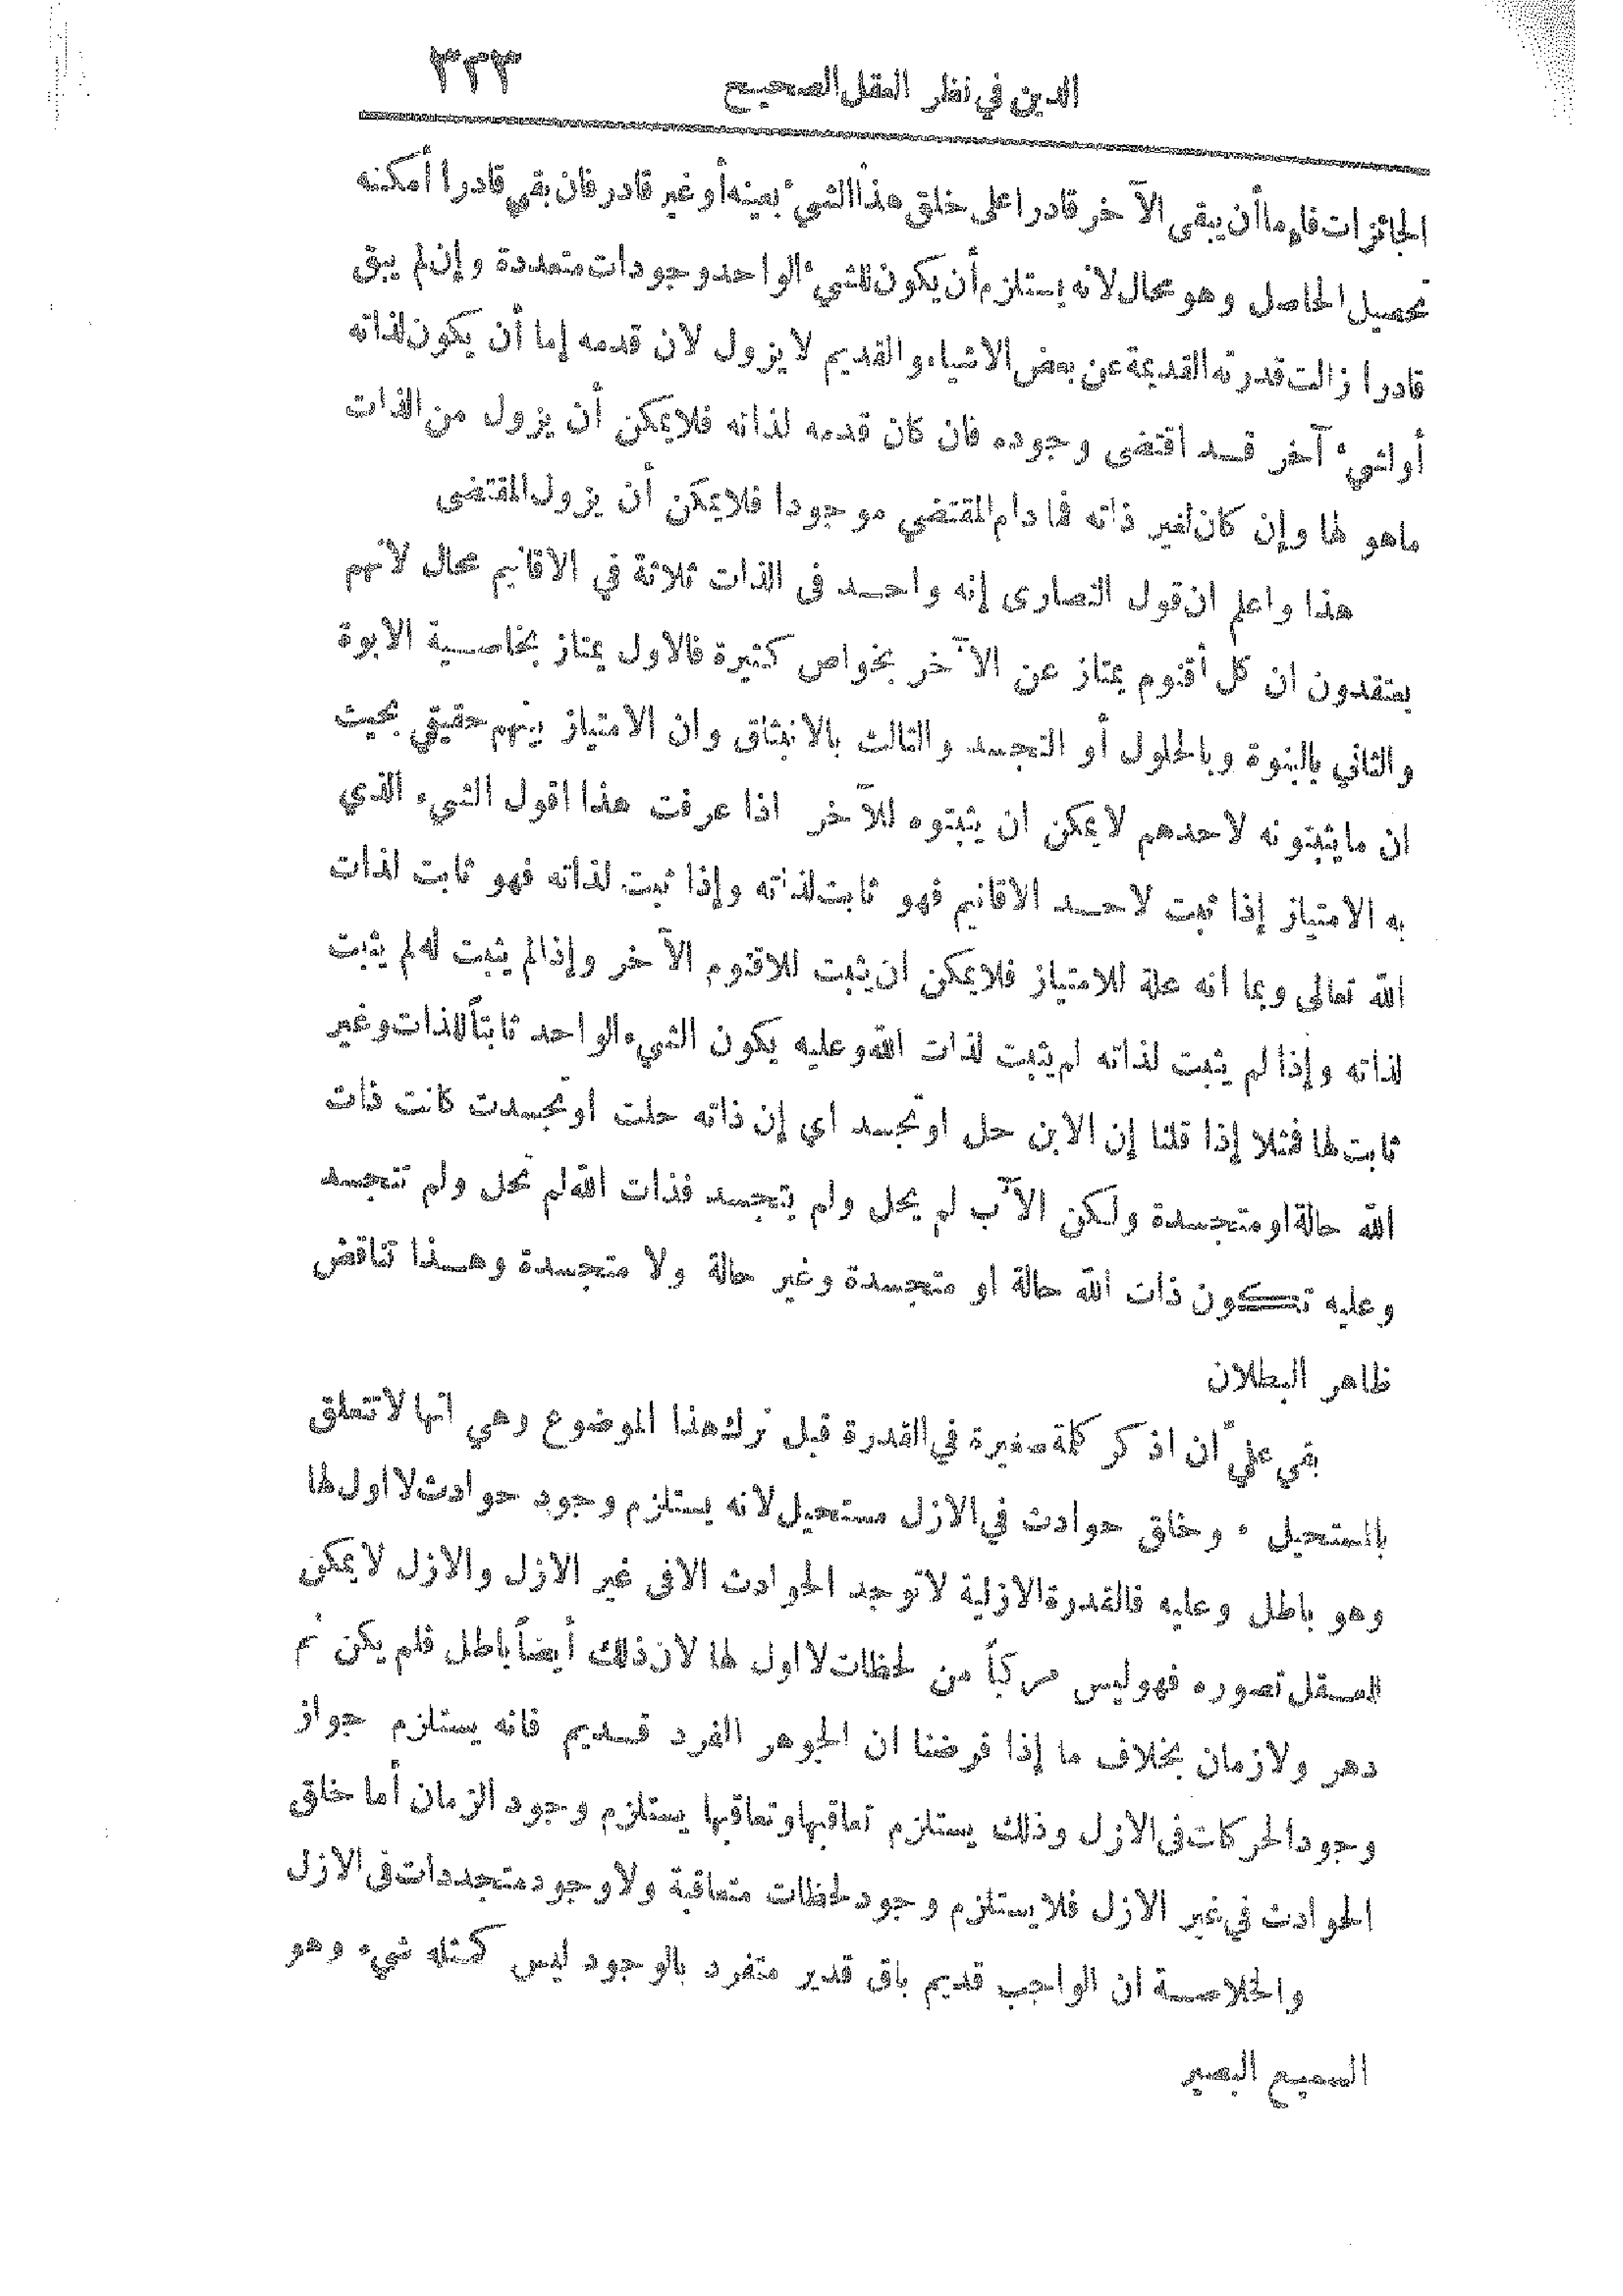 الدين في نظر العقل الصحيح ٣٢٣
الجائزات فإما أن يبقى الآخر قادرا على خلق هذا الشيء بعينه أو غير قادر فان بقي قادرا أمكنه
تحصيل الحاصل وهو محال لانه يستلزم أن يكون للشيء الواحد وجودات متعددة وإن لم يبق
قادرا زالت قدرته القديمة عن بعض الاشياء والقديم لا يزول لان قدمه إما أن يكون لذاته
أو لشيء آخر قد اقتضى وجوده فان كان قدمه لذاته فلا يمكن أن يزول من الذات
ماهو لها وإن كان لغير ذاته فما دام المقتضي موجودا فلا يمكن أن يزول المقتضى
هذا واعلم ان قول النصارى إنه واحد فى الذات ثلاثة في الاقانيم محال لأنهم
يعتقدون ان كل أقنوم يمتاز عن الآخر بخواص كثيرة فالاول يمتاز بخاصية الابوة
والثاني بالبنوة وبالحلول أو التجسد والثالث بالانبثاق وان الامتياز بينهم حقيقي بحيث
ان مايثبتونه لاحدهم لا يمكن ان يثبتوه للآخر اذا عرفت هذا اقول الشيء الذي
به الامتياز إذا ثبت لاحد الاقانيم فهو ثابت لذاته وإذا ثبت لذاته فهو ثابت لذات
الله تعالى وبما انه علة للامتياز فلا يمكن ان يثبت للاقنوم الآخر وإذا لم يثبت له لم يثبت
لذاته وإذا لم يثبت لذاته لم يثبت لذات الله وعليه يكون الشيء الواحد ثابتاً للذات وغير
ثابت لها فمثلا إذا قلنا إن الابن حل او تجسد اي إن ذاته حلت او تجسدت كانت ذات
الله حالة او متجسدة ولكن الآب لم يحل ولم يتجسد فذات الله لم تحل ولم تتجسد
وعليه تكون ذات الله حالة او متجسدة وغير حالة ولا متجسدة وهذا تناقض
ظاهر البطلان
بقي عليّ أن اذكر كلمة صغيرة في القدرة قبل ترك هذا الموضوع وهي انها لا تتعلق
بالمستحيل . وخلق حوادث في الازل مستحيل لانه يستلزم وجود حوادث لا اول لها
وهو باطل وعليه فالقدرة الازلية لا توجد الحوادث الا فى غير الازل والازل لا يمكن
العقل تصوره فهو ليس مركباً من لحظات لا اول لها لان ذلك أيضاً باطل فلم يكن ثم
دهر ولا زمان بخلاف ما إذا فرضنا ان الجوهر الفرد قديم فانه يستلزم جواز
وجود الحركات فى الازل وذلك يستلزم تعاقبها وتعاقبها يستلزم وجود الزمان أما خلق
الحوادث في غير الازل فلا يستلزم وجود لحظات متعاقبة ولا وجود متجددات فى الازل
والخلاصة ان الواجب قديم باق قدير متفرد بالوجود ليس كمثله شيء وهو
السميع البصير